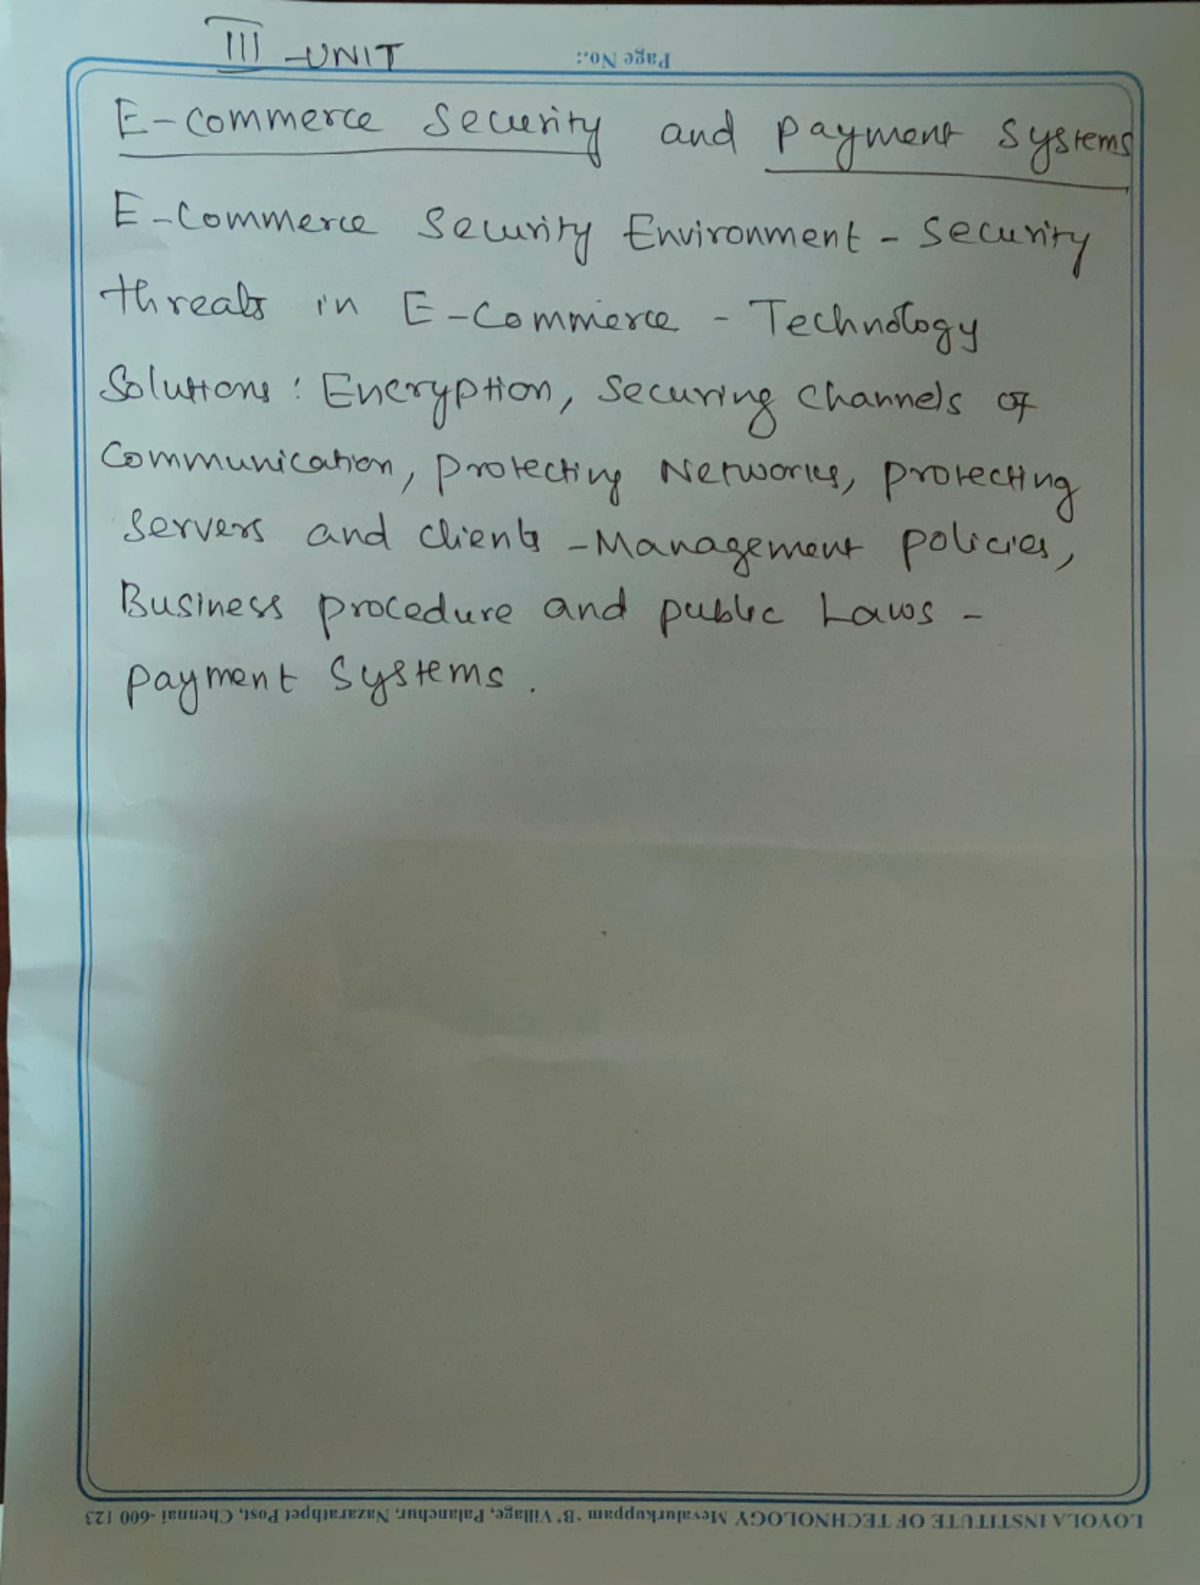 III - UNIT
Page No.:
E-commerce Security and payment Systems
E-Commerce Security Environment - Security
threats in E-Commerce - Technology
Solutions: Encryption, Securing Channels of
Communication, protecting Networks, protecting
Servers and clients - Management policies,
Business procedure and public Laws -
payment Systems.
LOYOLA INSTITUTE OF TECHNOLOGY Mevalurkuppam 'B' Village, Palanchur, Nazarathpet Post, Chennai -600 123